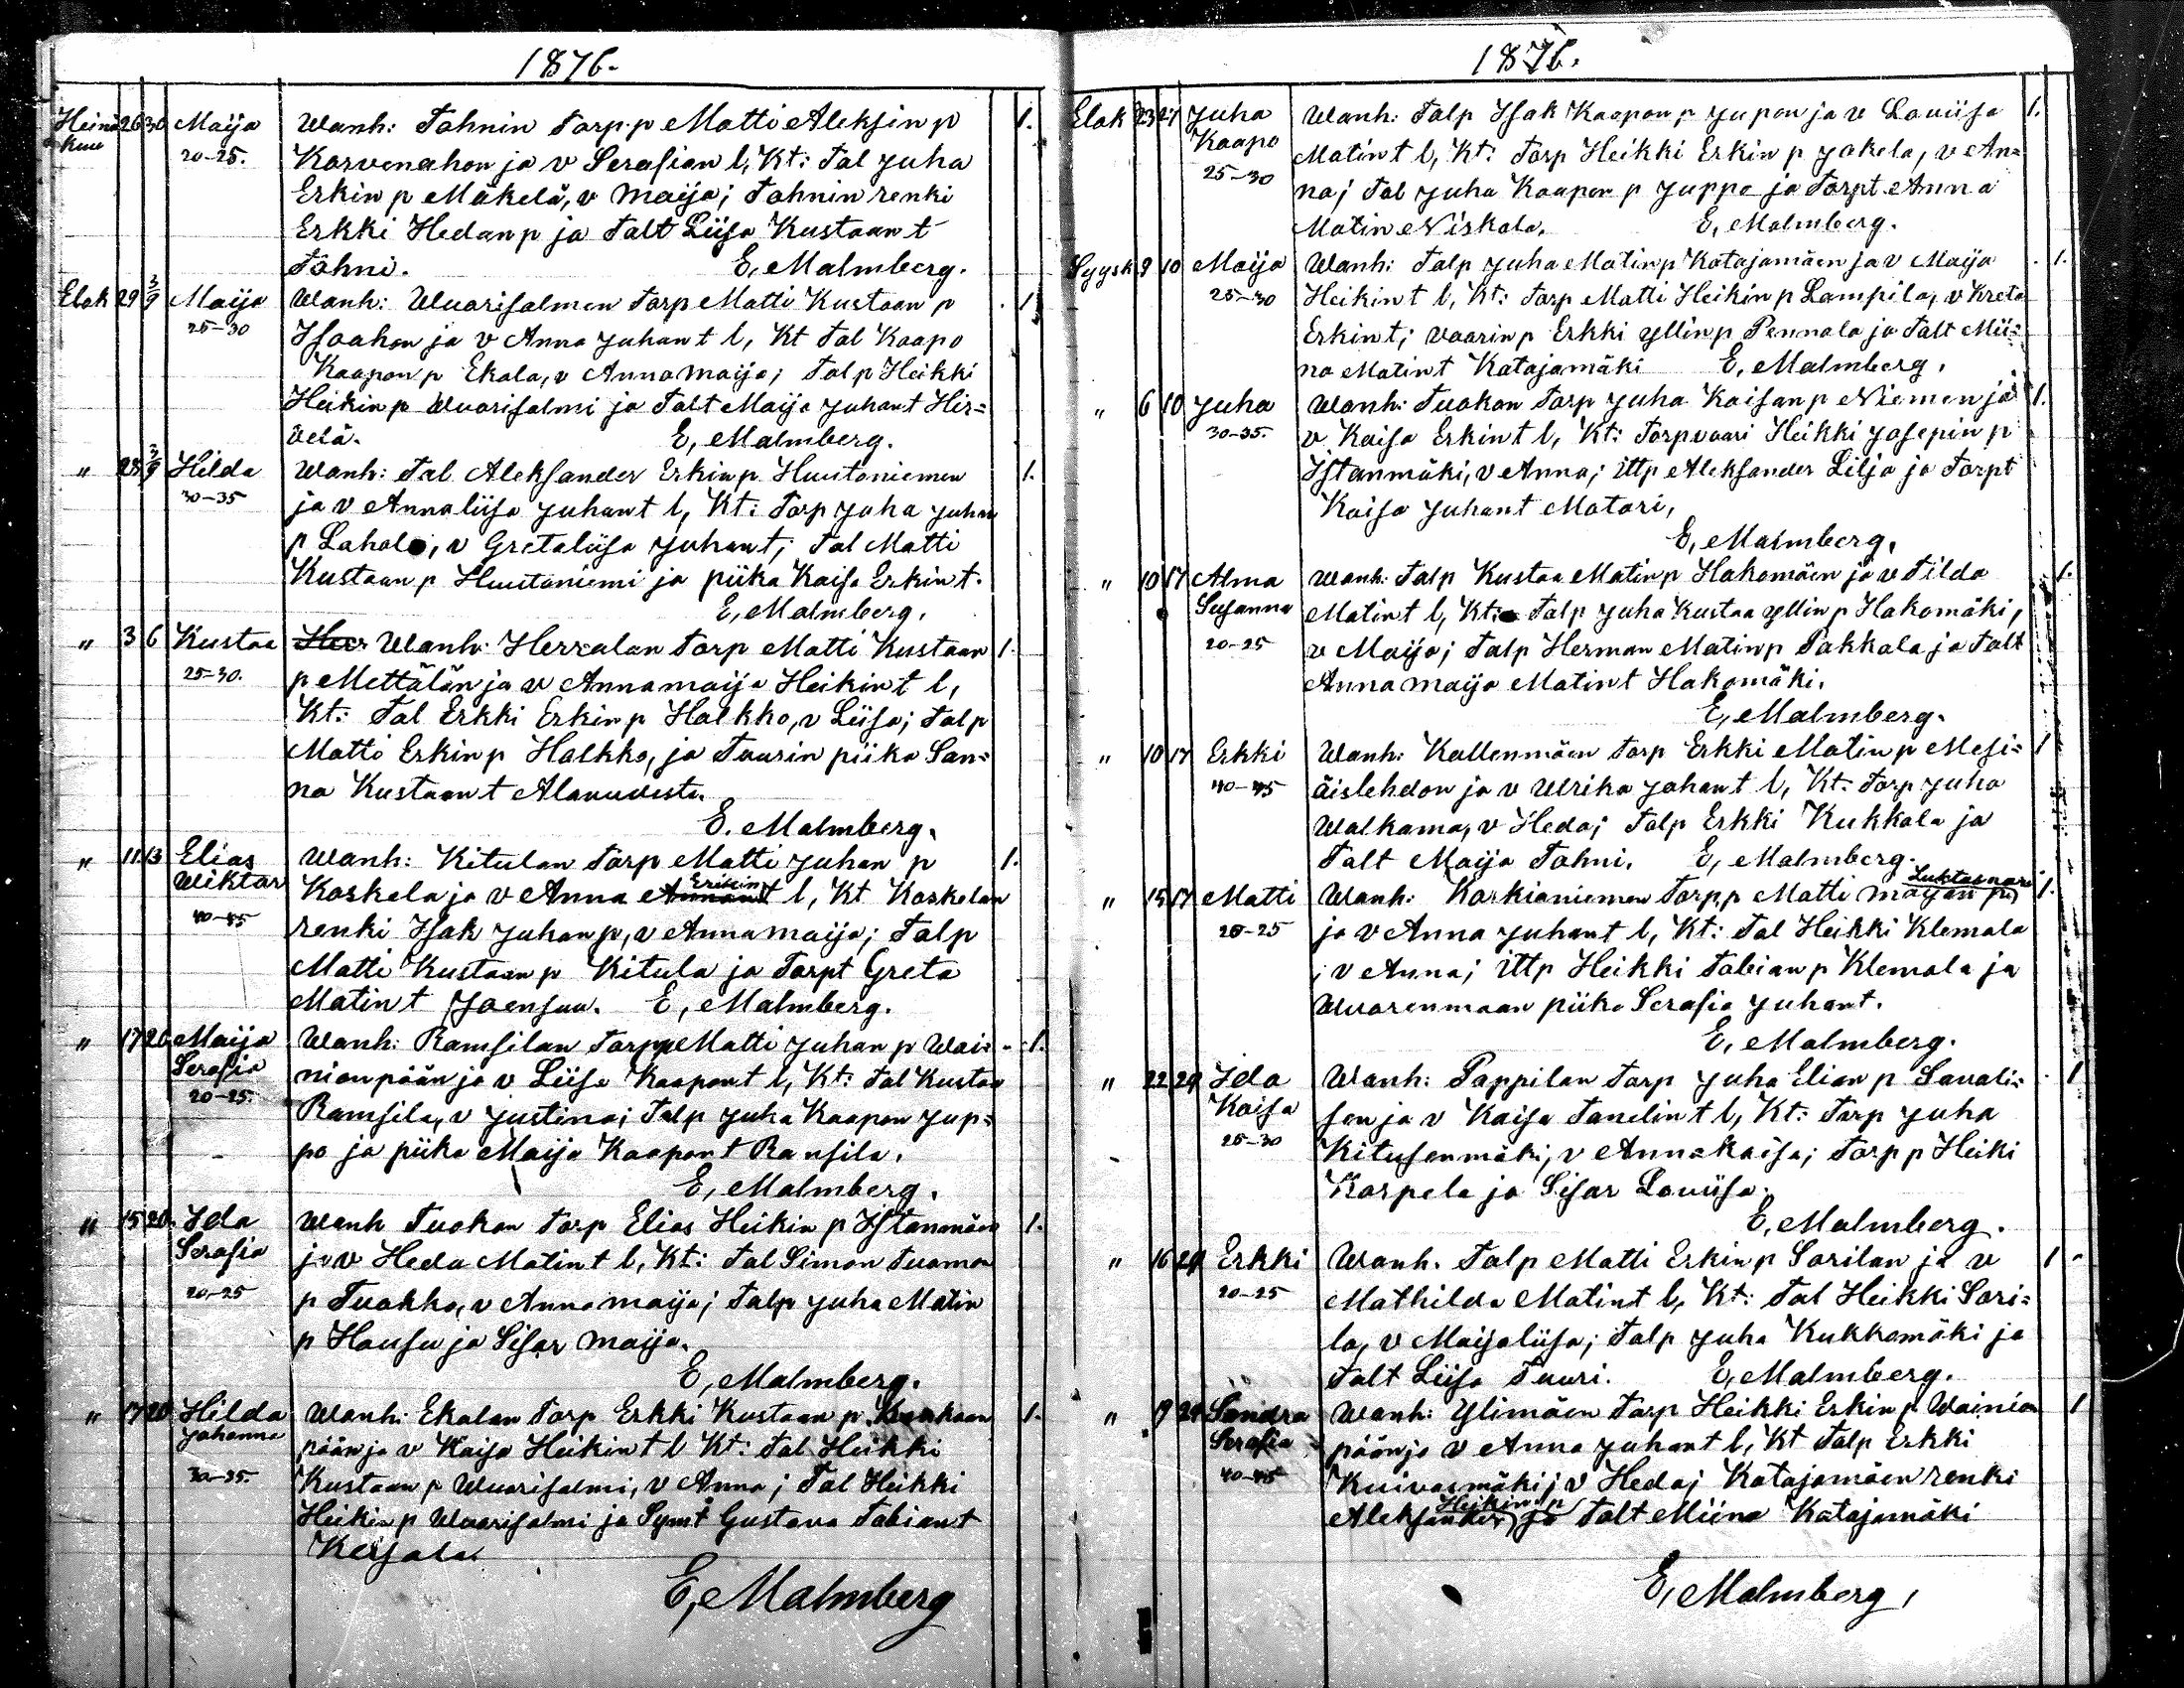 1876.
Heinä 26 30 Maija Wanh: Tahnin Torp.p Matti Aleksin p 1.
kuu 20-25. Korvenahon ja v Serafian l, Kt: Tal Juha
Erkin p Mäkelä, v Maija; Tahnin renki
Erkki Hedan p ja Talt Liisa Kustaan t
Tahni. E, Malmberg.
Elok 29 3/9 Maija Wanh: Wuorisalmen Torp Matti Kustaan p 1
25-30 Isoahon ja v Anna Juhan t l, Kt Tal Kaapo
Kaapon p Ekola, v Annamaija; Talp Heikki
Heikin p Wuorisalmi ja Talt Maija Juhan t Hir=
velä. E, Malmberg.
" 28 3/9 Hilda Wanh: Tal Aleksander Erkin p Huutoniemen 1.
30-35 ja v Annaliisa Juhan t l, Kt: Torp Juha Juhan
p Lahola, v Gretaliisa Juhan t; Tal Matti
Kustaan p Huutoniemi ja piika Kaisa Erkin t.
E, Malmberg.
" 3 6 Kustaa Her Wanh: Herralan Torp Matti Kustaan 1.
25-30. p Mettälän ja v Annamaija Heikin t l,
Kt: Tal Erkki Erkin p Halkko, v Liisa; Talp
Matti Erkin p Halkko, ja Tuurin piika San=
na Kustaan t Alavuudesta.
E. Malmberg.
" 11 13 Elias Wanh: Kitulan Torp Matti Juhan p 1.
Wiktor Koskela ja v Anna Annan Erikin t l, Kt Koskelan
40-45 renki Isak Juhan p, v Annamaija; Talp
Matti Kustaan p Kitula ja Torpt Greta
Matin t Joensuu. E, Malmberg.
" 17 20 Maija Wanh: Ramsilan Torpp Matti Juhan p Wai= 1.
Serafia nionpään ja v Liisa Kaapon t l, Kt: Tal Kustaa
20-25. Ramsila, v Justina; Talp Juha Kaapon Jup=
po ja piika Maija Kaapon t Ransila.
E, Malmberg.
" 15 20. Ida Wanh Tuokon Torp Elias Heikin p Istanmäen 1.
Serafia ja v Heda Matin t l, Kt: Tal Simon Tuomon
20-25 p Tuokko, v Annamaija; Talp Juha Matin
p Hausu ja Sisar Maija.
E, Malmberg.
" 17 20 Hilda Wanh: Ekolan Torp Erkki Kustaan p 1.
Johanna pään ja v Kaisa Heikin t l Kt: Tal Heikki
30-35. Kustaan p Wuorisalmi, v Anna; Tal Heikki
Heikin p Wuorisalmi ja Symt Gustava Tabian t
Keisala.
E, Malmberg
1876.
Elok 23 27 Juha Wanh: Talp Isak Kaapon p Jupon ja v Loviisa 1.
Kaapo Matin t l, Kt: Torp Heikki Erkin p Jokela, v An=
25-30 na; Tal Juha Kaapon p Juppo ja Torpt Anna
Matin Niskala. E, Malmberg.
Syysk 9 10 Maija Wanh: Talp Juha Matin p Katajamäen ja v Maija 1.
25-30 Heikin t l, Kt: Torp Matti Heikin p Lampila, v Kreta
Erkin t; Vaarin p Erkki Yllin p Pennala ja Talt Mii=
na Matin t Katajamäki E, Malmberg.
" 6 10 Juha Wanh: Tuokon Torp Juha Kaisan p Niemen ja 1.
30-35. v Kaisa Erkin t l, Kt: Torpvaari Heikki Josepin p
Istanmäki, v Anna; ittp Aleksander Lilja ja Torpt
Kaisa Juhan t Matari,
E, Malmberg.
" 10 17 Alma Wanh: Talp Kustaa Matin p Hakomäen ja v Tilda 1.
Susanna Matin t l, Kt: Talp Juha Kustaa Yllin p Hakomäki,
20-25 v Maija; Talp Herman Matin p Pakkala ja Talt
Annamaija Matin t Hakomäki.
E, Malmberg.
" 10 17 Erkki Wanh: Kallenmäen Torp Erkki Matin p Mesi= 1
40-45 äislehdon ja v Ulrika Johan t l, Kt: Torp Juha
Walkama, v Heda; Talp Erkki Kukkola ja
Talt Maija Tahni. E, Malmberg.
" 15 17 Matti Wanh: Korkianiemen Torpp Matti Maijan p 1.
20-25 ja v Anna Juhan t l, Kt: Tal Heikki Klemola
, v Anna; ittp Heikki Tabian p Klemola ja
Wuorenmaan piika Serafia Juhan t.
E, Malmberg.
" 22 24 Ida Wanh: Pappilan Torp Juha Elian p Savoli= 1
Kaisa sen ja v Kaisa Tanelin t l, Kt: Torp Juha
25-30 Kitusenmäki, v Annakaisa; Torp p Heiki
Korpela ja Sisar Loviisa.
E, Malmberg.
" 16 24 Erkki Wanh. Talp Matti Erkin p Sorilan ja v 1
20-25 Mathilda Matin t l, Kt: Tal Heikki Sori=
la, v Maijaliisa; Talp Juha Kukkomäki ja
Talt Liisa Tuuri. E, Malmberg.
" 19 24 Sandra Wanh: Ylimäen Torp Heikki Erkin p Wainion 1
Serafia pään ja v Anna Juhan t l, Kt Talp Erkki
40-45 Kuivasmäki; v Heda; Katajamäen renki
Aleksander Heikin p ja Talt Miina Katajamäki
E, Malmberg,